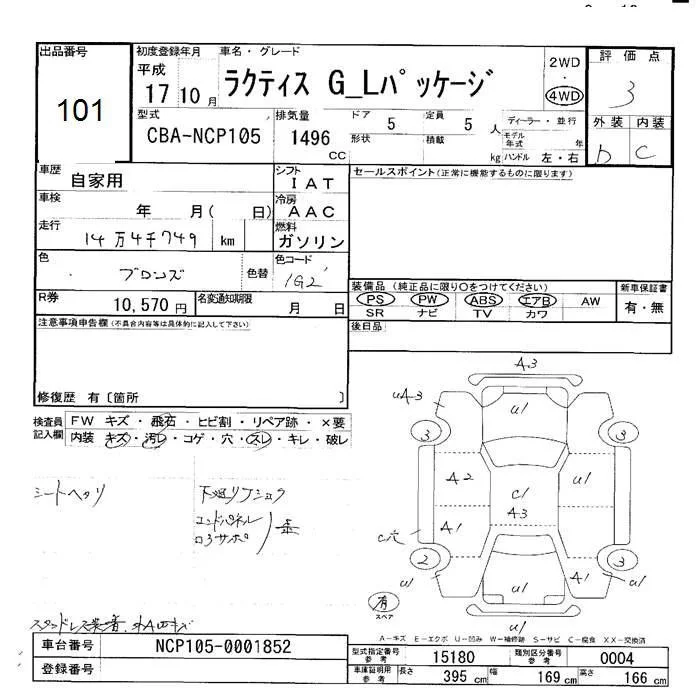 出品番号
101
初度登録年月
平成
17 10 月
車名・グレード
ラクティス G_Lパッケージ
2WD
・
4WD
評価点
3
型式
CBA-NCP105
排気量
1496
CC
ドア
5
定員
5
人
形状
積載
kg
ディーラー・並行
モデル
年式
年
ハンドル 左・右
外装
内装
D
C
車歴
自家用
シフト
IAT
車検
年 月( 日)
冷房
AAC
走行
14万4千749 km
燃料
ガソリン
色
ブロンズ
色替
色コード
1G2
R券
10,570 円
名変通知期限
月 日
セールスポイント(正常に機能するものに限ります)
装備品 (純正品に限り〇をつけてください)
PS PW ABS エアB AW
SR ナビ TV カワ
新車保証書
有・無
後日品
注意事項申告欄(不具合内容等は具体的に記入して下さい)
修復歴 有〔箇所 〕
検査員
記入欄
FW キズ・飛石・ヒビ割・リペア跡・×要
内装 キズ・汚レ・コゲ・穴・スレ・キレ・破レ
シートヘタリ
下廻り
エンドパネル
スタッドレス装着
A3
UA3
U1
3
3
A2
C1
A3
U1
A1
C穴
2
3
U1
U1
A1
U1
U1
有
スペア
A-キズ E-エクボ U-凹み W-補修跡 S-サビ C-腐食 XX-交換済
車台番号
NCP105-0001852
登録番号
型式指定番号
参考
15180
類別区分番号
参考
0004
車庫証明用
参考
長さ
395 cm
幅
169 cm
高さ
166 cm